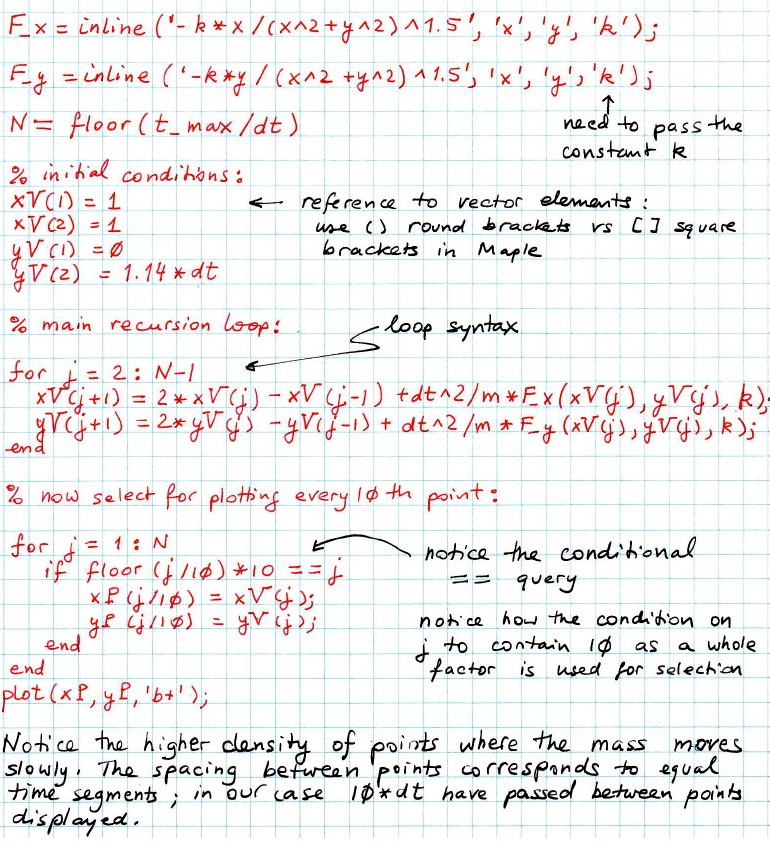 F_x = inline ('-k*x/(x^2+y^2)^1.5', 'x', 'y', 'k');
F_y = inline ('-k*y/(x^2+y^2)^1.5', 'x', 'y', 'k');
N = floor(t_max/dt)
need to pass the
constant k
% initial conditions:
xV(1) = 1
xV(2) = 1
yV(1) = 0
yV(2) = 1.14*dt
← reference to vector elements:
use () round brackets vs [] square
brackets in Maple
% main recursion loop:
loop syntax
for j = 2 : N-1
xV(j+1) = 2*xV(j) - xV(j-1) + dt^2/m*F_x(xV(j), yV(j), k);
yV(j+1) = 2*yV(j) - yV(j-1) + dt^2/m*F_y(xV(j), yV(j), k);
end
% now select for plotting every 10th point:
for j = 1 : N
if floor(j/10)*10 == j
xP(j/10) = xV(j);
yP(j/10) = yV(j);
end
end
plot(xP, yP, 'b+');
notice the conditional
== query
notice how the condition on
j to contain 10 as a whole
factor is used for selection
Notice the higher density of points where the mass moves
slowly. The spacing between points corresponds to equal
time segments; in our case 10*dt have passed between points
displayed.